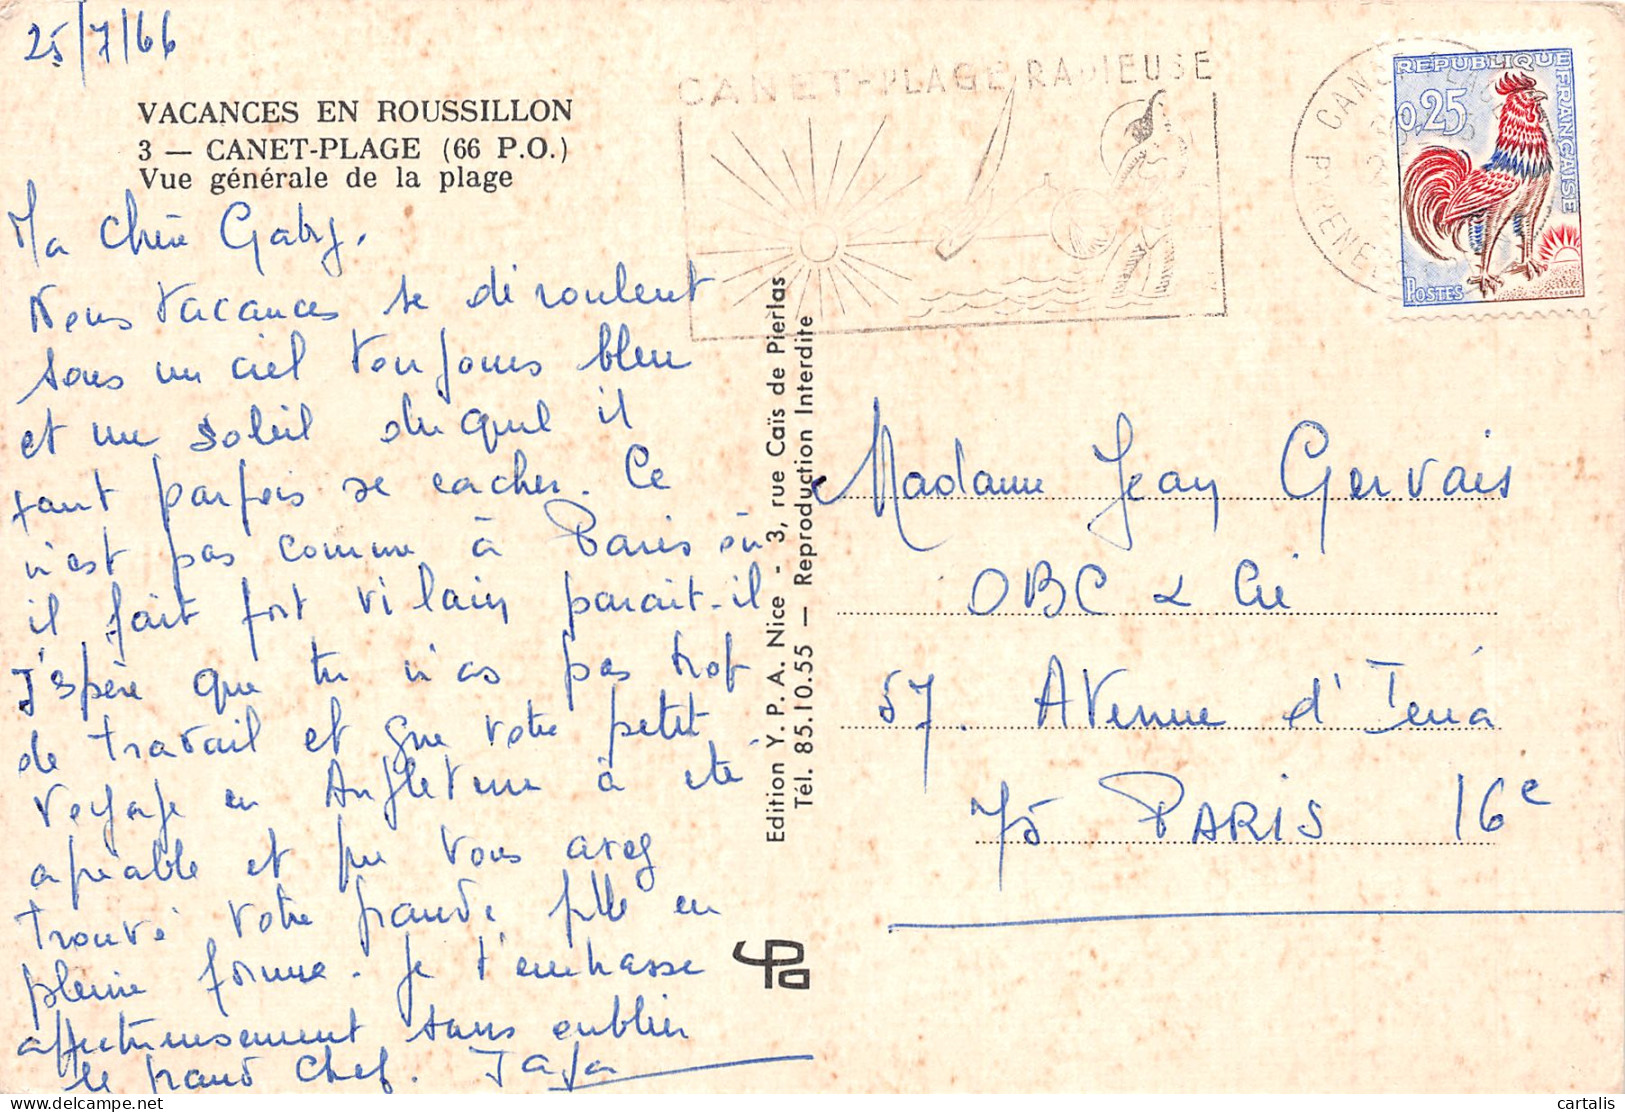 25/7/66
VACANCES EN ROUSSILLON
3 — CANET-PLAGE (66 P.O.)
Vue générale de la plage
Ma chère Gaby,
Nous vacances se déroulent
sous un ciel toujours bleu
et un soleil duquel il
faut parfois se cacher. Ce
n'est pas comme à Paris où
il fait fort vilain parait-il
J'espère que tu n'as pas trop
de travail et que votre petit
voyage en Angleterre à été
agréable et que vous avez
trouvé votre grande fille en
pleine forme. Je t'embrasse
affectueusement sans oublier
le grand Chef.
Edition Y. P. A. Nice - 3, rue Caïs de Pierlas
Tél. 85.10.55 — Reproduction Interdite
CANET-PLAGE RADIEUSE
CANET PLAGE
PYRENEES
REPUBLIQUE FRANCAISE
0,25
POSTES
DECARIS
Madame Jean Gervais
OBC & Cie
57. Avenue d'Iena
75 PARIS 16e
cartalis